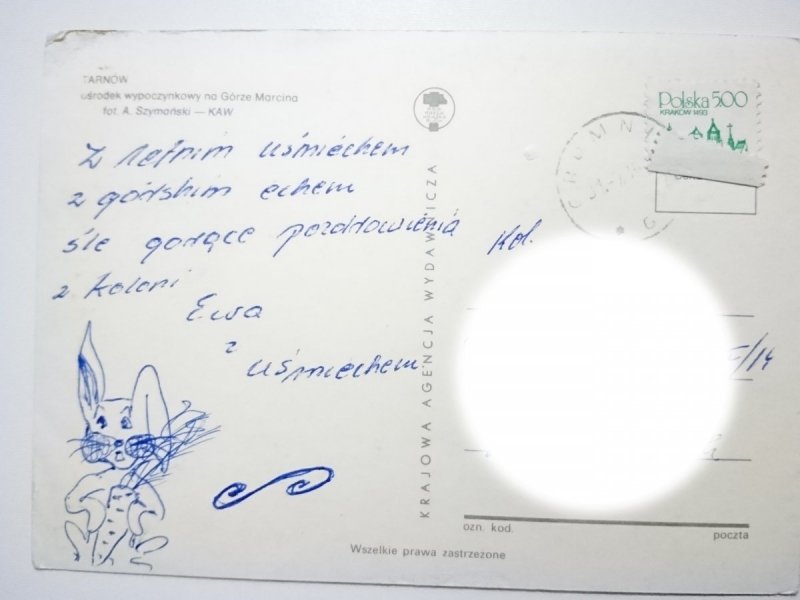 TARNÓW
ośrodek wypoczynkowy na Górze Marcina
fot. A. Szymański — KAW
Z letnim uśmiechem
z górskim echem
śle gorące pozdrowienia
z koloni
Ewa
z
uśmiechem
KRAJOWA AGENCJA WYDAWNICZA
Polska 500
KRAKÓW 1493
GROMNI
Kol.
/14
ozn. kod.
poczta
Wszelkie prawa zastrzeżone